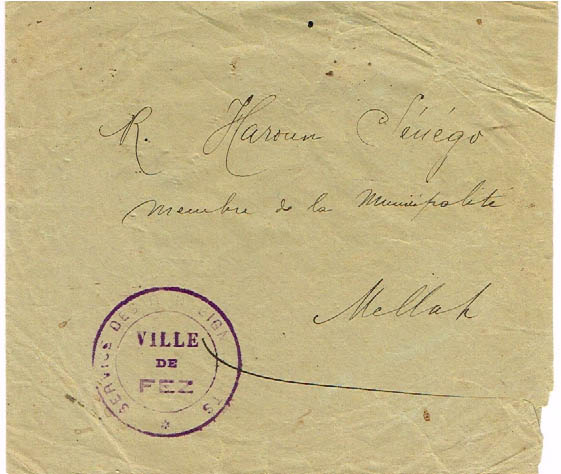 R. Haroun Sénégo
membre de la Municipalité
Mellah
SERVICE DES
VILLE
DE
FEZ